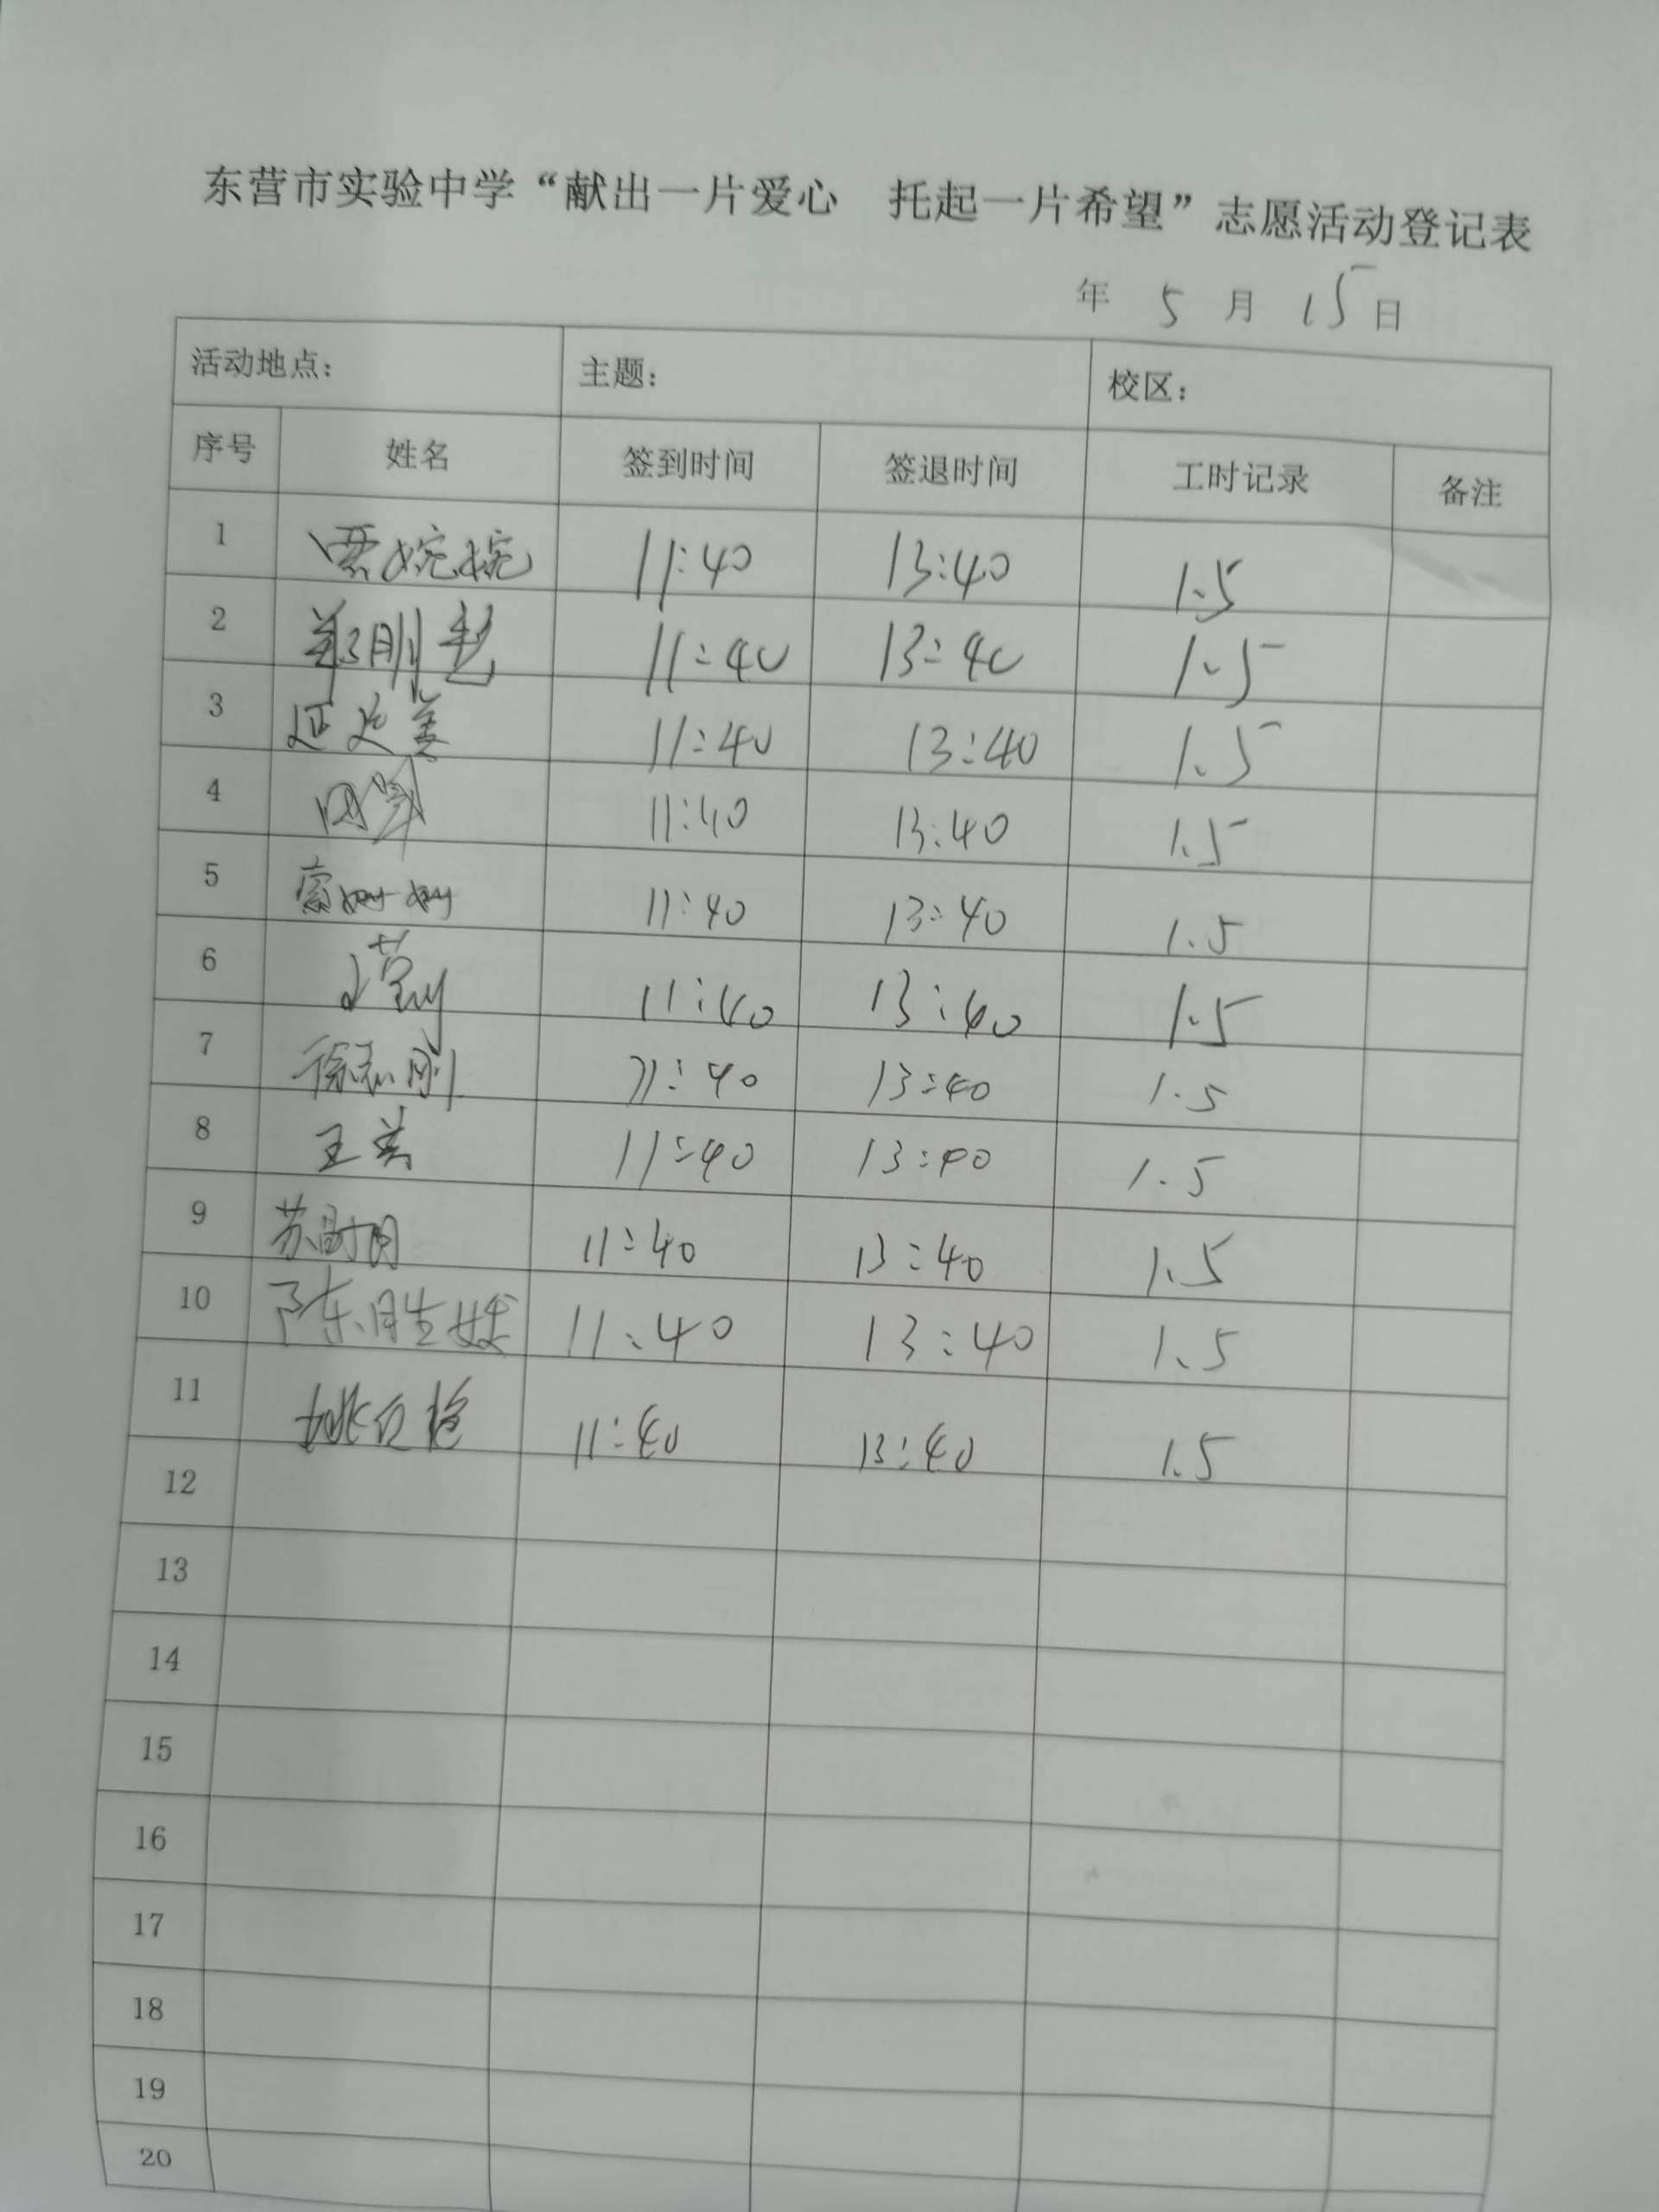 东营市实验中学“献出一片爱心 托起一片希望”志愿活动登记表
年 5 月 15日
活动地点: 主题: 校区:
序号 姓名 签到时间 签退时间 工时记录 备注
1 贾婉婉 11:40 13:40 1.5
2 11:40 13:40 1.5
3 11:40 13:40 1.5
4 11:40 13:40 1.5
5 11:40 13:40 1.5
6 11:40 13:40 1.5
7 徐志刚 11:40 13:40 1.5
8 王美 11:40 13:40 1.5
9 11:40 13:40 1.5
10 陈胜 11:40 13:40 1.5
11 姚 11:40 13:40 1.5
12
13
14
15
16
17
18
19
20